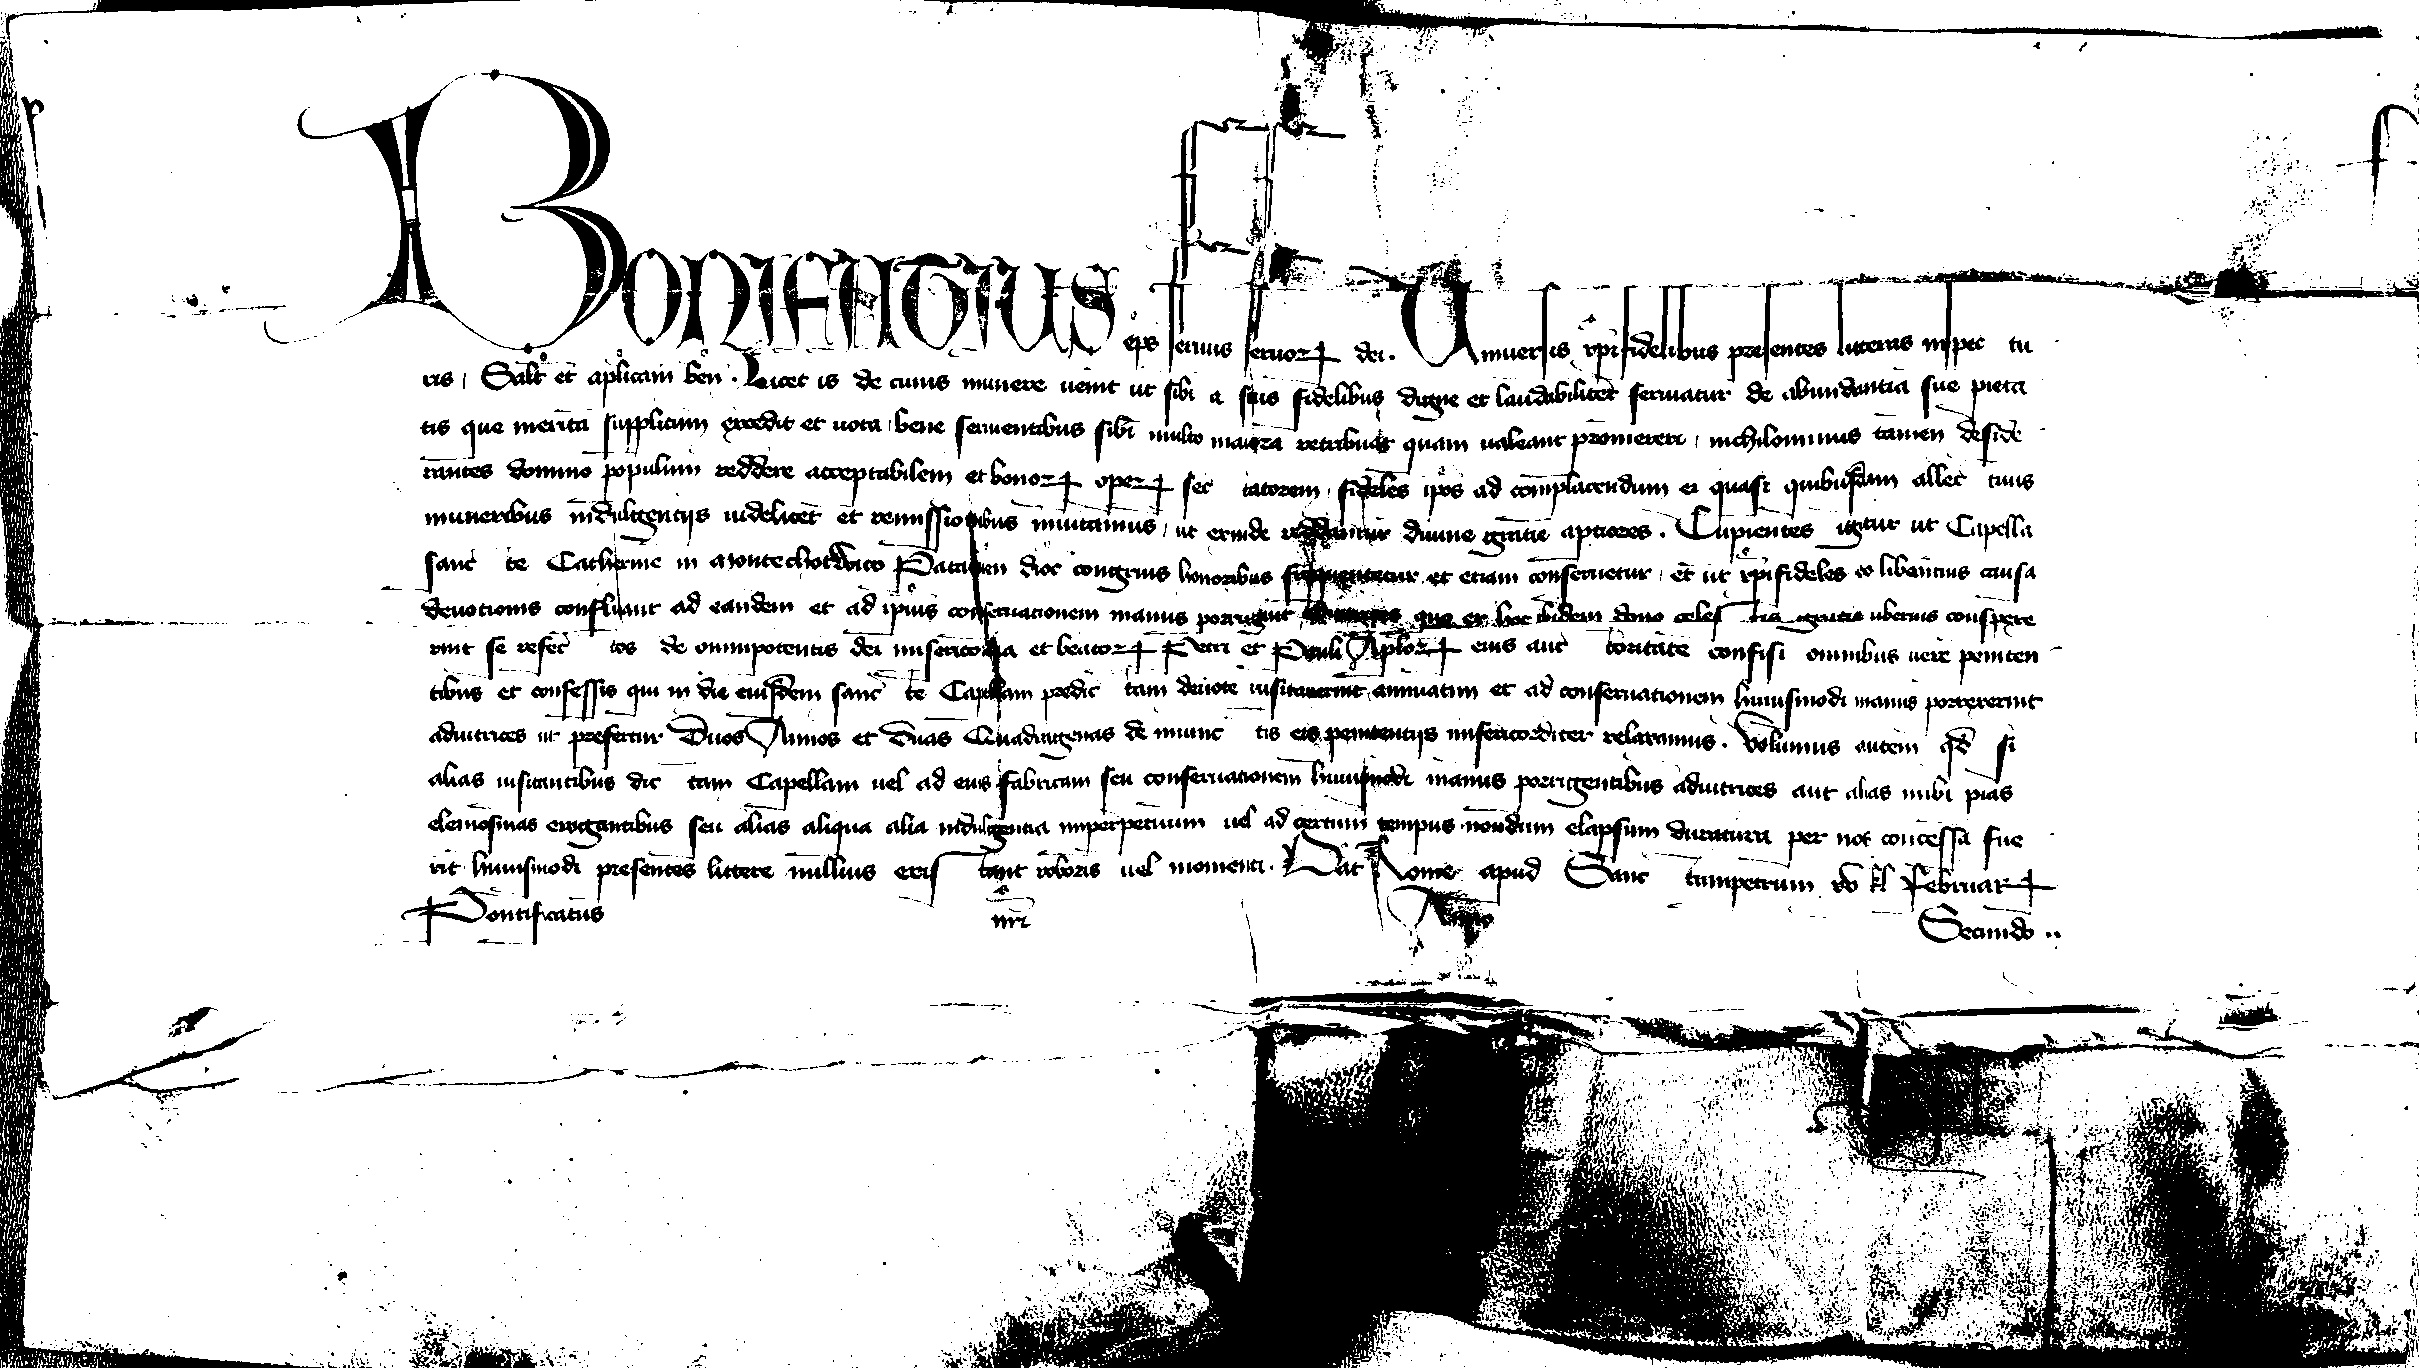 Bonifatius eps seruus seruor dei. Uniuersis xpifidelibus presentes litteras inspec tu
ris, Salt et aplicam ben. Licet is de cuius munere uenit ut sibi a suis fidelibus digne et laudabiliter seruiatur de abundantia sue pieta
tis que merita supplicum excedit et uota bene seruientibus sibi multo maiora retribuat quam ualeant promereri, nichilominus tamen deside
rantes domino populum reddere acceptabilem et bonor oper sec tatorem, fideles ipos ad complacendum ei quasi quibusdam allec tiuis
muneribus indulgentijs uidelicet et remissionibus inuitamus, ut exinde reddantur diuine gratie aptiores. Cupientes igitur ut Capella
sanc te Catherine in Patauien dioc congruis honoribus frequentetur et etiam conseruetur, et ut xpifideles eo libentius causa
deuotionis confluant ad eandem et ad ipius conseruationem manus porrigant quo ex hoc ibidem dono celes tis gratie uberius conspexe
rint se refec tos de omnipotentis dei misericordia et beator Petri et Pauli Aplor eius auc toritate confisi omnibus uere peniten
tibus et confessis qui in die eiusdem sanc te Capellam predic tam deuote uisitauerint annuatim et ad conseruationem huiusmodi manus porrexerint
adiutrices ut prefertur Duos Annos et duas Quadragenas de iniunc tis eis penitentijs misericorditer relaxamus. Volumus autem qd si
alias uisitantibus dic tam Capellam uel ad eius fabricam seu conseruationem huiusmodi manus porrigentibus adiutrices aut alias inibi pias
elemosinas erogantibus seu alias aliqua alia indulgentia imperpetuum uel ad certum tempus nondum elapsum duratura per nos concessa fue
rit huiusmodi presentes littere nullius exis tant roboris uel momenti. Dat Rome apud Sanc tumpetrum kl Februar
Pontificatus nri Anno Secundo ..